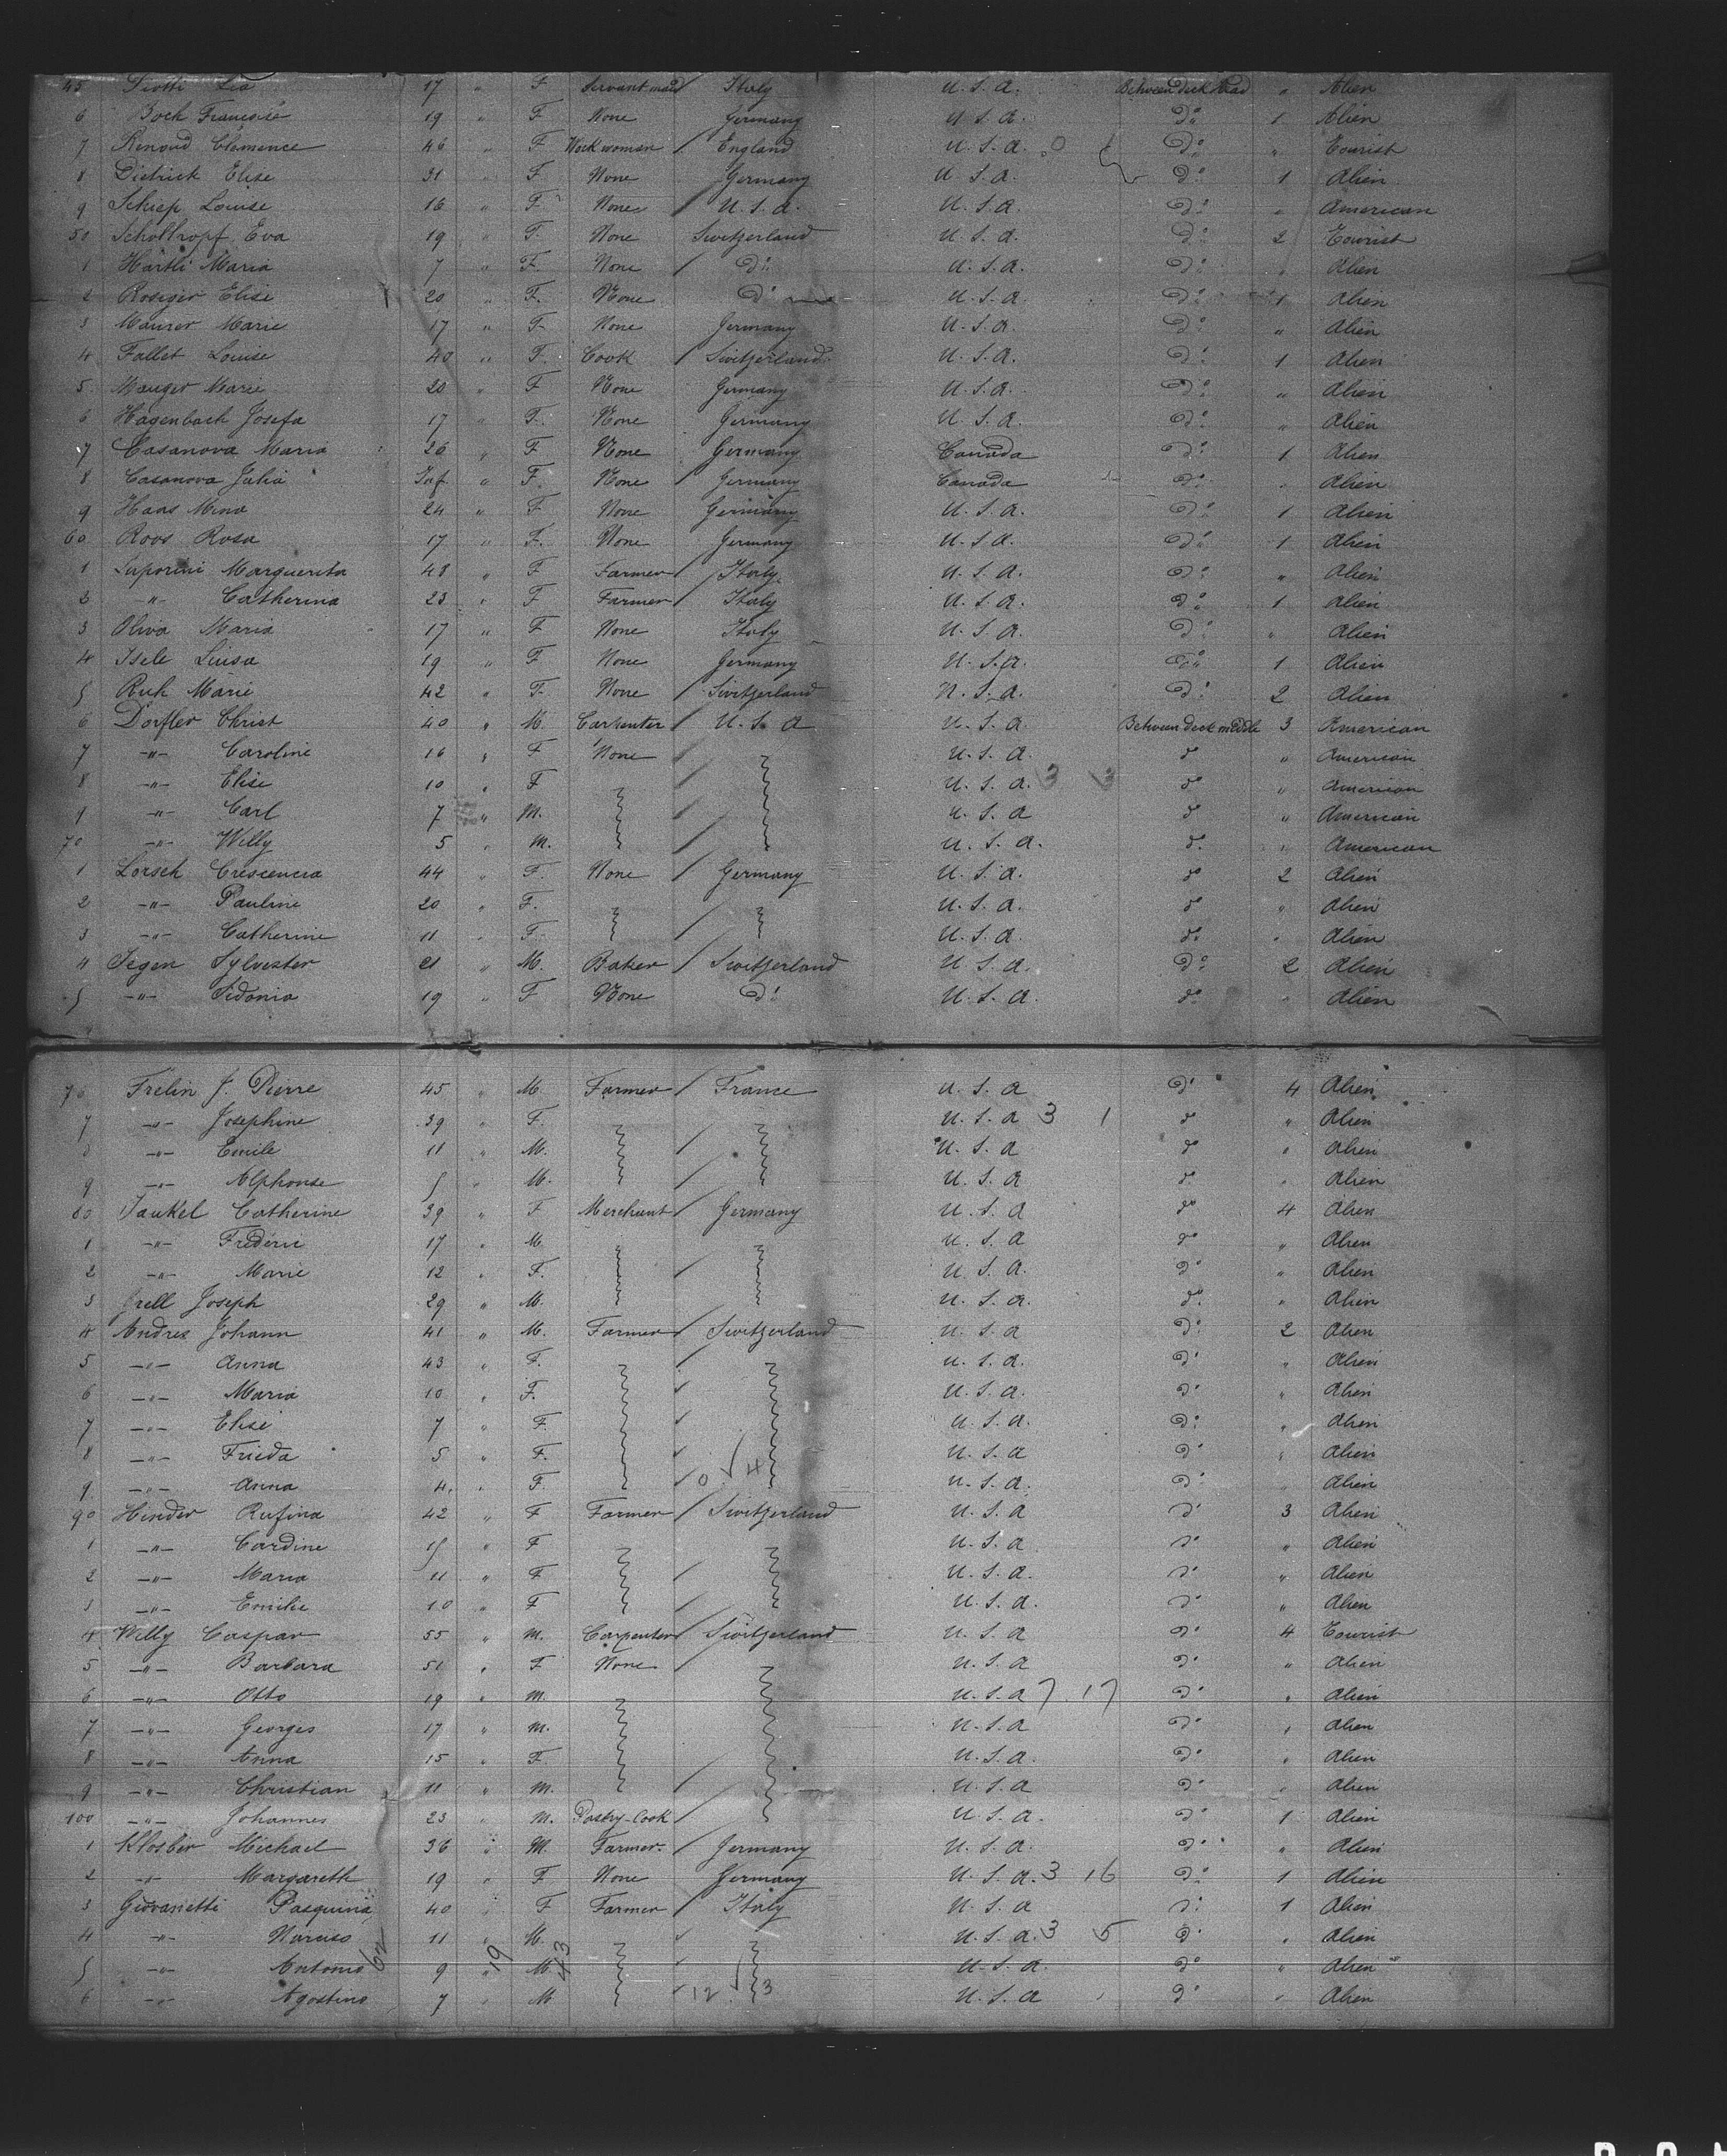 45 Lia 17 " F Servant maid / Italy U.S.A. Between deck " Alien
6 Bock Françoise 19 " F None Germany U.S.A. Do 1 Alien
7 Renaud Clémence 46 " F Workwoman / England U.S.A. 0 Do " Tourist
8 Dietrich Elise 31 " F None Germany U.S.A. Do 1 Alien
9 Schiep Louise 16 " F None / U.S.A. U.S.A. Do " American
50 Schollropf Eva 19 " F. None Switzerland U.S.A. Do 2 Tourist
1 Hartli Maria 7 " F. None / Do U.S.A. Do " Alien
2 Roseger Elise 20 " F. None Do U.S.A. Do 1 Alien
3 Maurer Marie 17 " F. None Germany U.S.A. Do " Alien
4 Fallet Louise 40 " F. Cook / Switzerland U.S.A. Do 1 Alien
5 Mauger Marie 20 " F None Germany U.S.A. Do " Alien
6 Hagenbach Josefa 17 " F. None Germany U.S.A. Do " Alien
7 Casanova Maria 26 " F None Germany Canada Do 1 Alien
8 Casanova Julia Inf " F. None Germany Canada Do " Alien
9 Haas Mina 24 " F None Germany U.S.A. Do 1 Alien
60 Roos Rosa 17 " F. None Germany U.S.A. Do 1 Alien
1 Luporini Marguerita 48 " F Farmer / Italy U.S.A. Do " Alien
2 -"- Catherina 23 " F Farmer / Italy U.S.A. Do 1 Alien
3 Oliva Maria 17 " F None Italy U.S.A. Do " Alien
4 Isele Luisa 19 " F None Germany U.S.A. Do 1 Alien
5 Ruh Marie 42 " F. None Switzerland U.S.A. Do 2 Alien
6 Dorfler Christ 40 " M. Carpenter / U.S.A U.S.A Between deck middle 3 American
7 -"- Caroline 16 " F None / U.S.A. do " American
8 -"- Elise 10 " F / U.S.A. 3 3 do " American
9 -"- Carl 7 " M. / U.S.A do " American
70 -"- Willy 5 " M. / U.S.A. do " American
1 Lorsch Crescencia 44 " F. None / Germany U.S.A. do 2 Alien
2 -"- Pauline 20 " F. / U.S.A. do " Alien
3 -"- Catherine 11 " F. / U.S.A. do " Alien
4 Jegen Sylvester 21 " M. Baker / Switzerland U.S.A. Do 2 Alien
5 -"- Sidonia 19 " F None Do U.S.A. do " Alien
76 Frelin J. Pierre 45 " M Farmer / France U.S.A Do 4 Alien
7 -"- Josephine 39 " F. U.S.A 3 1 do " Alien
8 -"- Emile 11 " M. / U.S.A do " Alien
9 -"- Alphonse 5 " M. / U.S.A do " Alien
80 Jaukel Catherine 39 " F Merchant / Germany U.S.A do 4 Alien
1 -"- Frederic 17 " M U.S.A do " Alien
2 -"- Marie 12 " F. / U.S.A. Do " Alien
3 Joseph 29 " M. U.S.A. do " Alien
4 Andres Johann 41 " M. Farmer / Switzerland U.S.A Do 2 Alien
5 -"- Anna 43 " F. / U.S.A. Do " Alien
6 -"- Maria 10 " F. / U.S.A. Do " Alien
7 -"- Elise 7 " F. / U.S.A. Do " Alien
8 -"- Frieda 5 " F. / U.S.A Do " Alien
9 -"- Anna 4. " F. / 0 4 U.S.A. Do Alien
90 Hinder Rufina 42 " F Farmer / Switzerland U.S.A Do 3 Alien
1 -"- Cardine 15 " F U.S.A Do " Alien
2 -"- Maria 11 " F / U.S.A. Do " Alien
3 -"- Emilie 10 " F / U.S.A. Do " Alien
4 Willy Caspar 55 " M. Carpenter / Switzerland U.S.A Do 4 Tourist
5 -"- Barbara 51 " F None / U.S.A Do " Alien
6 -"- Otto 19 " M. U.S.A 7 17 Do " Alien
7 -"- Georges 17 " M. U.S.A Do " Alien
8 -"- Anna 15 " F U.S.A. Do " Alien
9 -"- Christian 11 " M. / U.S.A Do " Alien
100 -"- Johannes 23 " M. Pastry-Cook / U.S.A. Do 1 Alien
1 Klosbir Michael 36 " M. Farmer / Germany U.S.A. Do " Alien
2 -"- Margareth 19 " F None Germany U.S.A. 3 16 Do 1 Alien
3 Giovanetti Pasquina 40 " F Farmer / Italy U.S.A Do 1 Alien
4 -"- Narciso 11 " M. / U.S.A. 3 5 Do " Alien
5 -"- Antonio 9 " M / U.S.A. Do " Alien
6 -"- Agostino 7 " M / 12 3 U.S.A Do " Alien
62 19 43